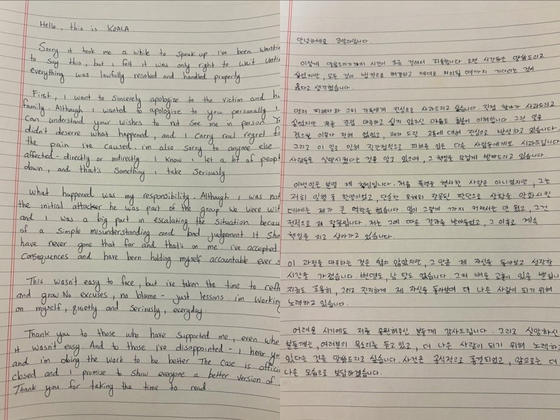 Hello, this is KOALA
Sorry it took me a while to speak up i've been wanting
to say this, but i felt it was only right to wait until
everything was lawfully resolved and handled properly
First, i want to sincerely apologise to the victim and his
family. Although i wanted to apologise to you personally i
Can understand your wishes to not see me in person. You
didn't deserve what happened, and i carry real regret for
the pain i've caused. i'm also sorry to anyone else
affected - directly or indirectly. i know i let a lot of people
down, and that's Something i take Seriously
What happened was my responsibility. Although i was not
the initial attacker he was part of the group we were with
and i was a big part in escalating the Situation because
of a Simple misunderstanding and bad judgement. it Should
have never gone that far and that's on me. i've accepted
Consequences and have been holding myself accountable ever
This wasn't easy to face, but i've taken the time to reflect
and grow. No excuses, no blame - just lessons. i'm working
on myself, quietly and Seriously, everyday
Thank you to those who have Supported me, even when
it wasn't easy. And to those i've disappointed - i hear you
and i'm doing the work to be better. The Case is officially
closed and i promise to show everyone a better version of
Thank you for taking the time to read
안녕하세요 코알라입니다.
이렇게 말씀드리기까지 시간이 조금 걸려서 죄송합니다. 오랜 시간동안 말씀드리고
싶었지만, 모든 것이 법적으로 해결되고 제대로 처리될 때까지 기다리는 것이
옳다고 생각했습니다.
먼저 피해자와 그의 가족에게 진심으로 사과드리고 싶습니다. 직접 찾아가 사과드리고
싶었지만 저를 직접 마주하고 싶지 않으신 마음도 충분히 이해합니다. 그런 일을
겪으실 이유가 전혀 없었고, 제가 드린 고통에 대해 진심으로 반성하고 있습니다.
그리고 이 일로 인해 직간접적으로 피해를 입은 다른 사람들에게도 사과드립니다.
사람들을 실망시켰다는 것을 알고 있으며, 그 책임을 무겁게 받아들이고 있습니다.
이번일은 분명 제 책임입니다. 처음 폭행을 행사한 사람은 아니었지만, 그는
저희 일행 중 한명이었고, 단순한 오해와 잘못된 판단으로 상황을 악화시킨
데에는 제가 큰 역할을 했습니다. 일이 그렇게 까지 커져서는 안 됐고, 그건
전적으로 제 잘못입니다. 저는 그에 따른 결과를 받아들였고, 그 이후로 계속
책임을 지고 살아가고 있습니다.
이 과정을 마주하는 것은 쉽지 않았지만, 그 만큼 제 자신을 돌아보고 성장하는
시간을 가졌습니다. 변명도, 남 탓도 않습니다. 그저 배운 교훈이 있을 뿐입니다.
지금도 조용히, 그리고 진지하게 제 자신을 돌아보며 더 나은 사람이 되기 위해
노력하고 있습니다.
어려운 시기에도 저를 응원해주신 분들께 감사드립니다. 그리고 실망하신
분들께는, 여러분의 목소리를 듣고 있고, 더 나은 사람이 되기 위해 노력하고
있다는 것을 말씀드리고 싶습니다. 사건은 공식적으로 종결되었고, 앞으로 더
나은 모습으로 보답하겠습니다.